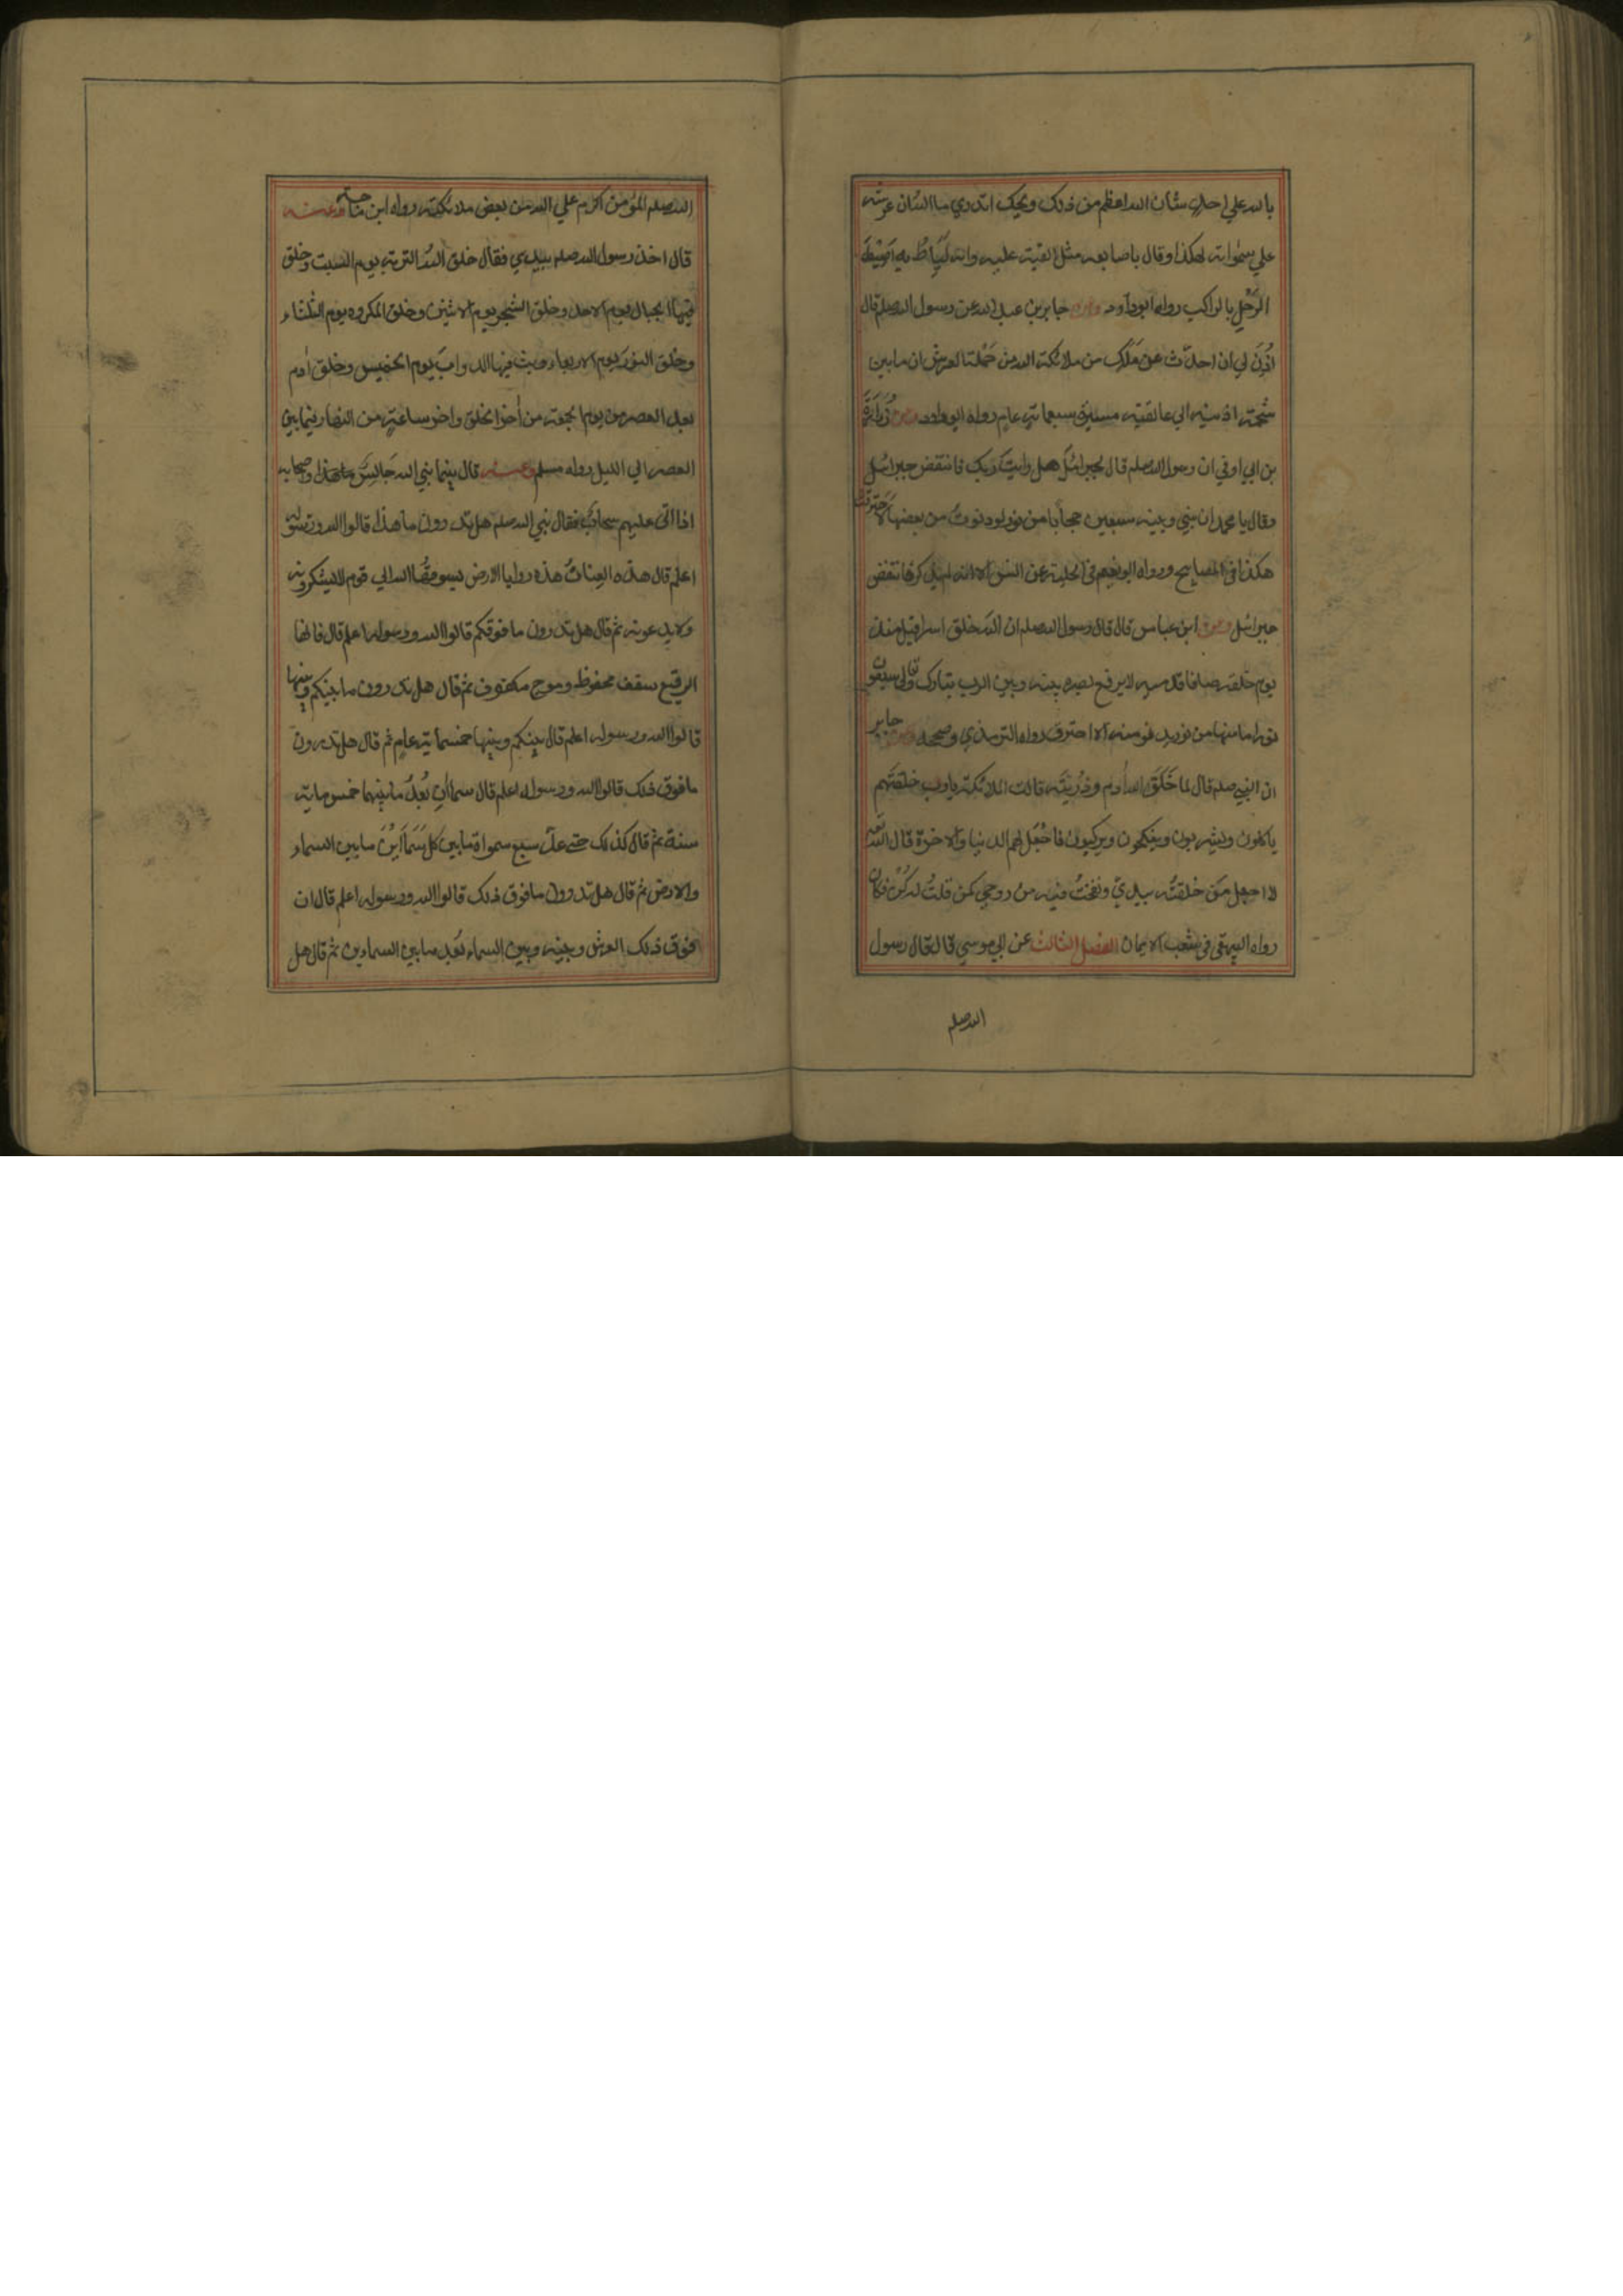 بالله علي احد شان الله اعظم من ذلك ويحك اتدري ما الله ان عرشه
علي سمواته لهكذا وقال باصابعه مثل القبة عليه وانه لَيَاطُّ به اَطِيْطَ
الرَحْلِ بالراكب رواه ابوداود وعن جابر بن عبد الله عن رسول الله صلم قال
اُذِنَ لي ان احدّث عن مَلَكٍ من ملائكة الله من حَمْلَة العرش ان ما بين
شحمة اذنيه الي عاتقيه مسيرة سبعماية عام رواه ابوداود وعن زُرَارَةَ
بن ابي اوفي ان رسول الله صلم قال لجبرائيل هل رايتَ ربك فانتفض جبرائيل
وقال يا محمد ان بيني وبينه سبعين حجابا من نور لو دنوتُ من بعضها لاحترقتُ
هكذا في المصابيح ورواه ابو نعيم في الحلية عن انس الا انه لم يذكر فانتفض
جبرائيل وعن ابن عباس قال قال رسول الله صلم ان الله خلق اسرافيل منذ
يوم خلقه صافا قدميه لا يرفع بصره بينه وبين الرب تبارك وتعالي سبعون
نورا ما منها من نور يدنو منه الا احترق رواه الترمذي وصححه وعن جابر
ان النبي صلم قال لما خَلَقَ الله اٰدم وذُرِّيَّتَه قالت الملائكة يا رب خلقتَهم
ياكلون ويشربون وينكحون ويركبون فاجْعَل لهم الدنيا ولنا الاخرة قال الله تعه
لا اجعل مَن خلقتُه بيديَّ ونفختُ فيه من روحي كمن قلتُ له كُنْ فكان
رواه البيهقي في شعب الايمان الفصل الثالث عن ابي موسي قال قال رسول
الله صلم
الله صلم المؤمن اكرم علي الله من بعض ملائكته رواه ابن ماجة وعنه
قال اخذ رسول الله صلم بيدي فقال خلق اللهُ التربة يوم السبت وخلق
فيها الجبال يوم الاحد وخلق الشجر يوم الاثنين وخلق المكروه يوم الثلثاء
وخلق النورَ يوم الاربعاء وبث فيها الدوابَ يوم الخميس وخلق اٰدم
بعد العصر من يوم الجمعة من اٰخر الخلق واخر ساعةٍ من النهار فيما بين
العصر الي الليل رواه مسلم وعنه قال بينما نبي الله جَالِسٌ واصحابه
اذا اتي عليهم سحابٌ فقال نبي الله صلم هل تدرون ما هذا قالوا الله ورسوله
اعلم قال هذه العنانُ هذه روايا الارض يسوقُها الله الي قوم لا يشكرونه
ولا يدعونه ثم قال هل تدرون ما فوقكم قالوا الله ورسوله اعلم قال فانها
الرقيع سقف محفوظ وموج مكفوف ثم قال هل تدرون ما بينكم وبينها
قالوا الله ورسوله اعلم قال بينكم وبينها خمسماية عامٍ ثم قال هل تدرون
ما فوق ذلك قالوا الله ورسوله اعلم قال سماٰانِ بُعْدُ ما بينهما خمس ماية
سنة ثم قال كذلك حتي عدّ سبع سموات ما بين كل سَمَاَئَيْنِ ما بين السماء
والارض ثم قال هل تدرون ما فوق ذلك قالوا الله ورسوله اعلم قال ان
فوق ذلك العرش وبينه وبين السماء بُعد ما بين السماءين ثم قال هل